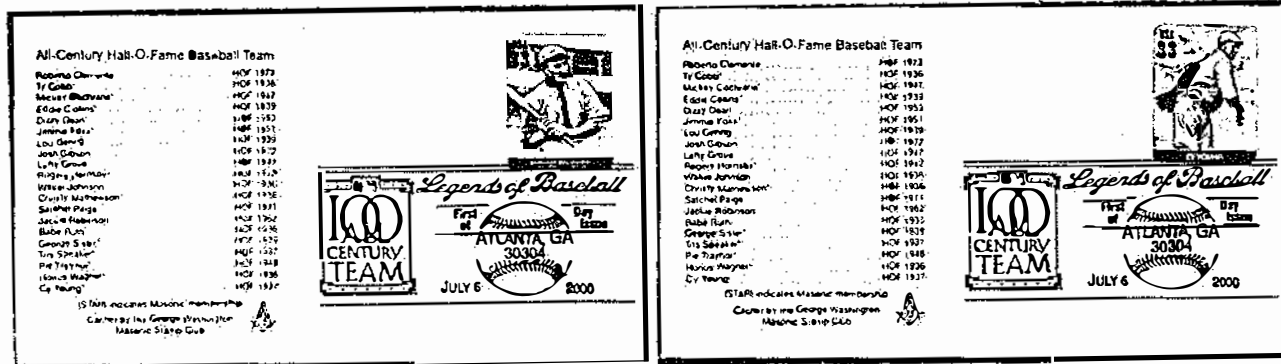 All-Century Hall-O-Fame Baseball Team
Roberto Clemente HOF 1973
Ty Cobb* HOF 1936
Mickey Cochrane* HOF 1947
Eddie Collins* HOF 1939
Dizzy Dean* HOF 1953
Jimmie Foxx* HOF 1951
Lou Gehrig HOF 1939
Josh Gibson HOF 1972
Lefty Grove HOF 1947
Rogers Hornsby* HOF
Walter Johnson HOF 1936
Christy Mathewson* HOF 1936
Satchel Paige HOF 1971
Jackie Robinson HOF 1962
Babe Ruth HOF 1936
George Sisler* HOF 1939
Tris Speaker* HOF 1937
Pie Traynor* HOF 1948
Honus Wagner* HOF 1936
Cy Young* HOF 1937
(STAR) indicates Masonic membership
Cachet by the George Washington
Masonic Stamp Club
100
CENTURY
TEAM
Legends of Baseball
First Day
of Issue
ATLANTA, GA
30304
JULY 6 2000
All-Century Hall-O-Fame Baseball Team
Roberto Clemente HOF 1973
Ty Cobb* HOF 1936
Mickey Cochrane* HOF 1947
Eddie Collins* HOF 1939
Dizzy Dean* HOF 1953
Jimmie Foxx* HOF 1951
Lou Gehrig HOF 1939
Josh Gibson HOF 1972
Lefty Grove HOF 1947
Rogers Hornsby* HOF 1942
Walter Johnson HOF 1936
Christy Mathewson* HOF 1936
Satchel Paige HOF 1971
Jackie Robinson HOF 1962
Babe Ruth HOF
George Sisler* HOF 1939
Tris Speaker* HOF 1937
Pie Traynor* HOF 1948
Honus Wagner* HOF 1936
Cy Young* HOF 1937
(STAR) indicates Masonic membership
Cachet by the George Washington
Masonic Stamp Club
33
100
CENTURY
TEAM
Legends of Baseball
First Day
of Issue
ATLANTA, GA
30304
JULY 6 2000